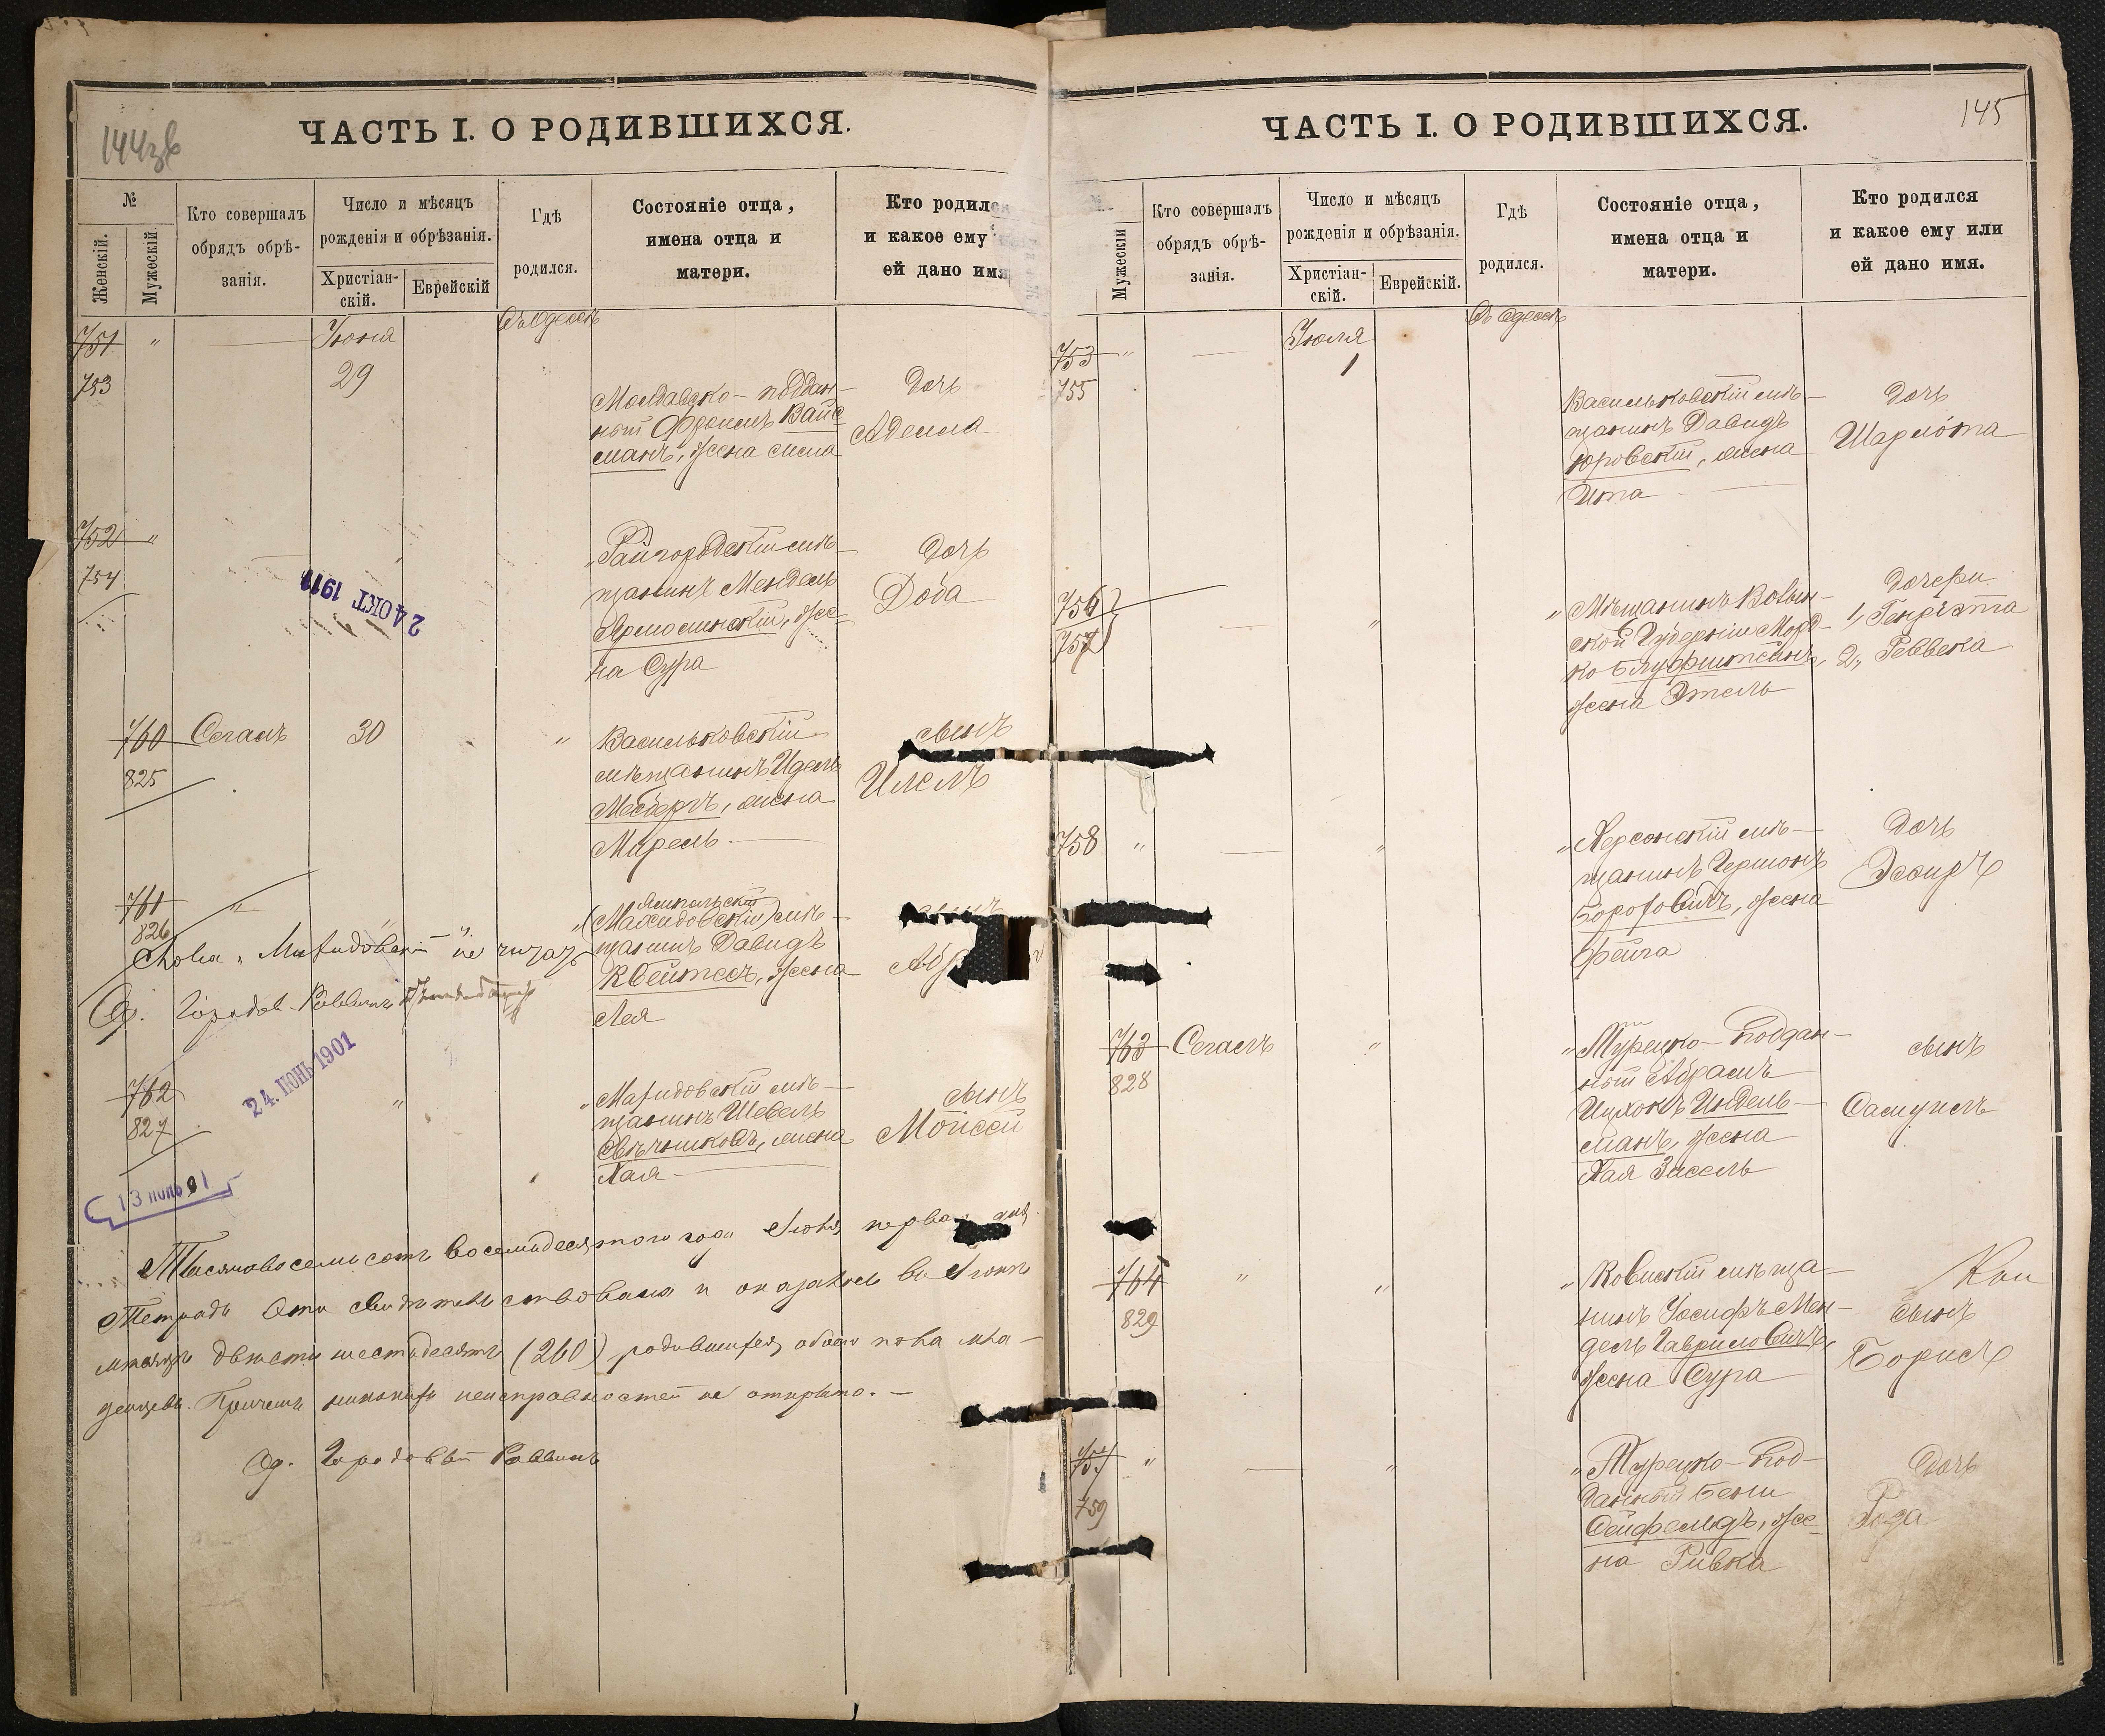 144зв
ЧАСТЬ I. О РОДИВШИХСЯ.
№
Женскій.
Мужескій.
Кто совершалъ
обрядъ обрѣ-
занія.
Число и мѣсяцъ
рожденія и обрѣзанія.
Христіан-
скій.
Еврейскій
Гдѣ
родился.
Состояніе отца,
имена отца и
матери.
Кто родился
и какое ему
ей дано имя
751 "
753
Іюня
29
Въ Одессѣ
Молдавско-поддан-
ный Фроимъ Вайс
манъ, жена
Дочь
Аделла
752 "
754
24 ОКТ 1911
"Райгородскій мѣ-
щанинъ Мендель
же-
на Сура
Дочь
Доба
760
825
Сегалъ
30
"
Васильковскій
мѣщанинъ Идель
жена
Мирель
сынъ
761
826
"
Ямпольскій
мѣ-
щанинъ Давидъ
Квейтель, жена
Лея
не читать
Городов. Раввинъ
24. ІЮНЬ 1901
762
827
"
мѣ-
щанинъ Шевель
Свѣчниковъ, жена
Хая
сынъ
Моисей
13 ІЮЛЬ 91
Тысяча восемьсотъ восемьдесятого года Іюля перва дня
Тетрадь эта свидѣтельствована и оказалось въ Іюнѣ
мѣсяцѣ двѣсти шестьдесятъ (260) родившихся обоего пола мла-
денцевъ. Причемъ никакихъ неисправностей не открыто.
Од. Городовой Раввинъ
145
ЧАСТЬ I. О РОДИВШИХСЯ.
Мужескій
Кто совершалъ
обрядъ обрѣ-
занія.
Число и мѣсяцъ
рожденія и обрѣзанія.
Христіан-
скій.
Еврейскій.
Гдѣ
родился.
Состояніе отца,
имена отца и
матери.
Кто родился
и какое ему или
ей дано имя.
753 "
755
Іюля
1
Въ Одессѣ
Васильковскій мѣ-
щанинъ Давидъ
Юровскій, жена
Ита
Дочь
Шарлота
756
757
"
"Мѣщанинъ Волын-
ской Губерніи Морд-
ко Блуфштейнъ,
жена Этель
Дочери
1, Генріэтта
2, Реввека
758 "
"
"Херсонскій мѣ-
щанинъ Гершонъ
Бороховичъ, жена
Фейга
Дочь
Эсѳирь
763
828
Сегалъ
"
"Турецко-поддан-
ный Абрамъ
Ицхокъ Индель-
манъ, жена
Хая Зисель
сынъ
Самуилъ
764
829
"
"
"Ковнскій мѣща-
нинъ Іосифъ Мен-
дель Гавриловичъ,
жена Сура
сынъ
Борисъ
757 "
759
"
"Турецко-под-
данный Бенци
Сейфельдъ, же-
на Ривка
Дочь
Роза